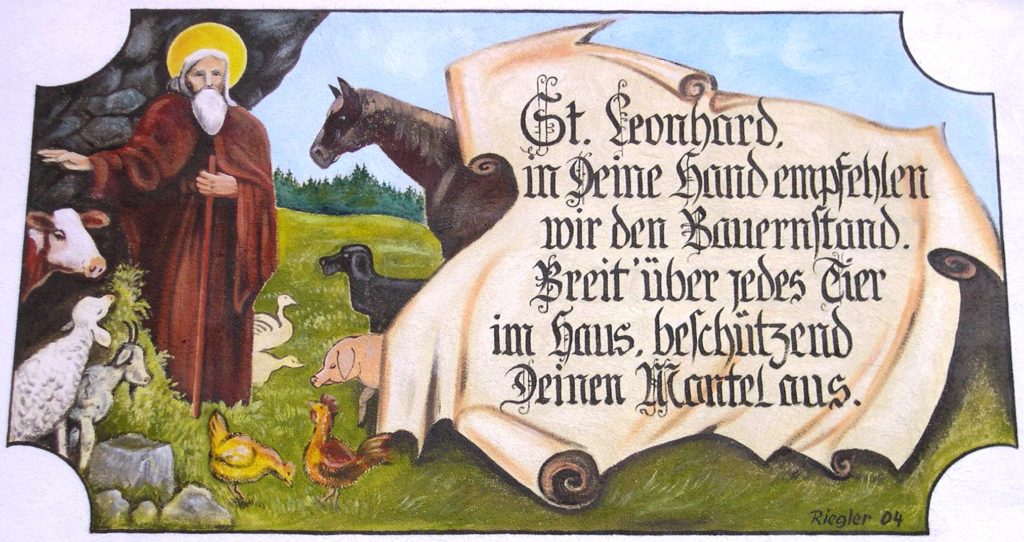 St. Leonhard,
in Deine Hand empfehlen
wir den Bauernstand.
Breit' über jedes Tier
im Haus, beschützend
Deinen Mantel aus.
Riegler 04